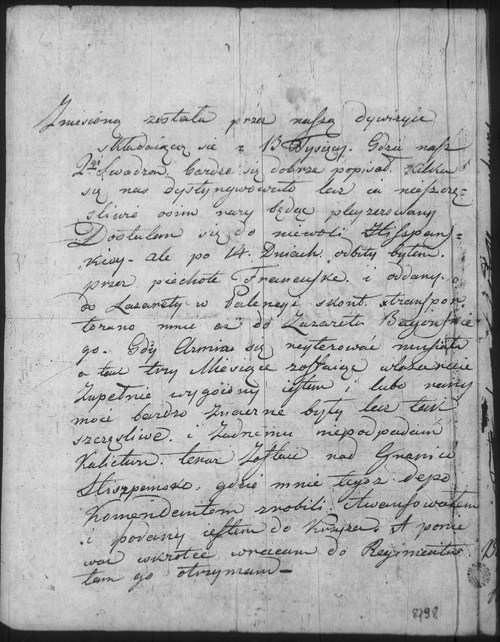 Zniesioną została przez naszą dywizyie
składaiącą się z 13 Tysięcy. Gdzie nasz
2gi Szwadron bardzo się dobrze popisał. Kilku
się nas dystyngwowało lecz ia nieszczę-
śliwie osim razy będąc pleyzerowany
Dostałem się do niewoli Hiszpań-
skiey. ale po 14. Dniach odbity byłem
przez piechotę Francuską. i oddany
do Lazaretu w Palencyi skąd transpor
towano mnie aż do Lazaretu Bayońskie
go. Gdy Armia się reyterować musiała
a tak trzy Miesiące zostaiąc w Lazarecie
Zupełnie wygoiony iestem i lubo rany
moie bardzo znaczne były lecz tak
szczęśliwe. i żadnemu niepodpadam
Kalictwu. teraz zostaię nad Granicą
Hiszpańską, gdzie mnie tegoż depo
Komendantem zrobili, Awansowałem
i podany iestem do Krzyża. A ponie
waż wkrótce wracam do Regimentu
tam go otrzymam —
8798